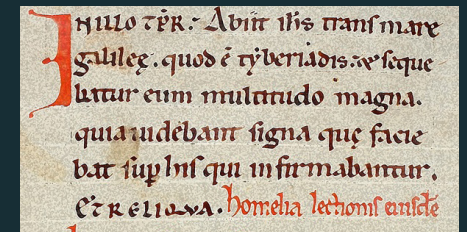 IN ILLO TP̄R. Abiit ih̄s trans mare
galileę. quod ē tyberiadis. & seque
batur eum multitudo magna.
quia uidebant signa quę facie
bat sup his qui infirmabantur.
ET RELIQUA. homelia lectionis eiusdē